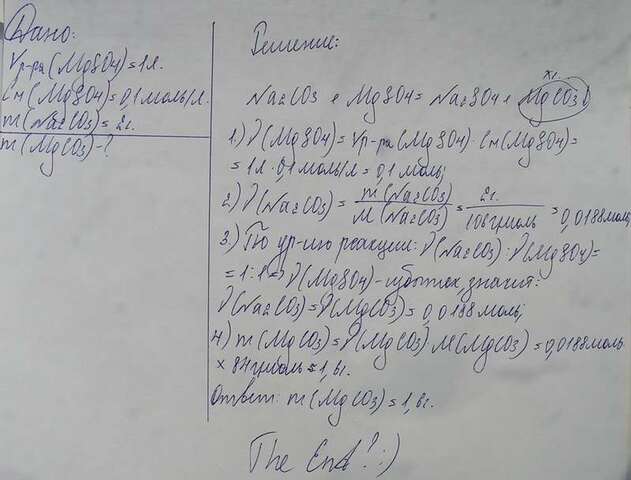 Дано:
Vр-ра(MgSO4)=1л.
Cм(MgSO4)=0,1моль/л.
m(Na2CO3)=2г.
m(MgCO3)-?
Решение:
xг.
Na2CO3 + MgSO4 = Na2SO4 + MgCO3↓
1) ν(MgSO4)=Vр-ра(MgSO4)·Cм(MgSO4)=
=1л·0,1моль/л=0,1моль;
2) ν(Na2CO3)=m(Na2CO3)/M(Na2CO3)=2г./106г/моль=0,0188моль;
3) По ур-ию реакции: ν(Na2CO3):ν(MgSO4)=
=1:1=>ν(MgSO4)-избыток, значит:
ν(Na2CO3)=ν(MgCO3)=0,0188моль;
4) m(MgCO3)=ν(MgCO3)·M(MgCO3)=0,0188моль
×84г/моль=1,6г.
Ответ: m(MgCO3)=1,6г.
The End! :)